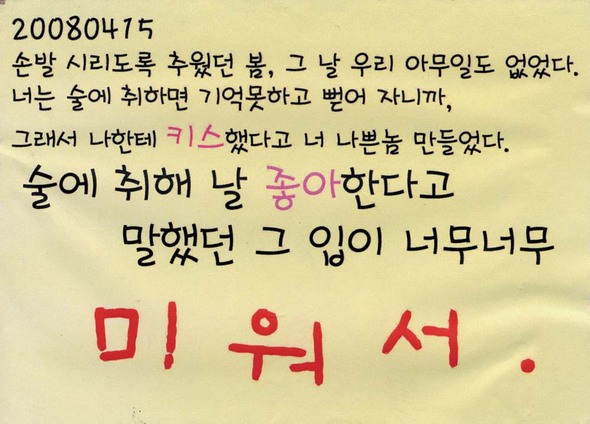 20080415
손발 시리도록 추웠던 봄, 그 날 우리 아무일도 없었다.
너는 술에 취하면 기억못하고 뻗어 자니까,
그래서 나한테 키스했다고 너 나쁜놈 만들었다.
술에 취해 날 좋아한다고
말했던 그 입이 너무너무
미워서.